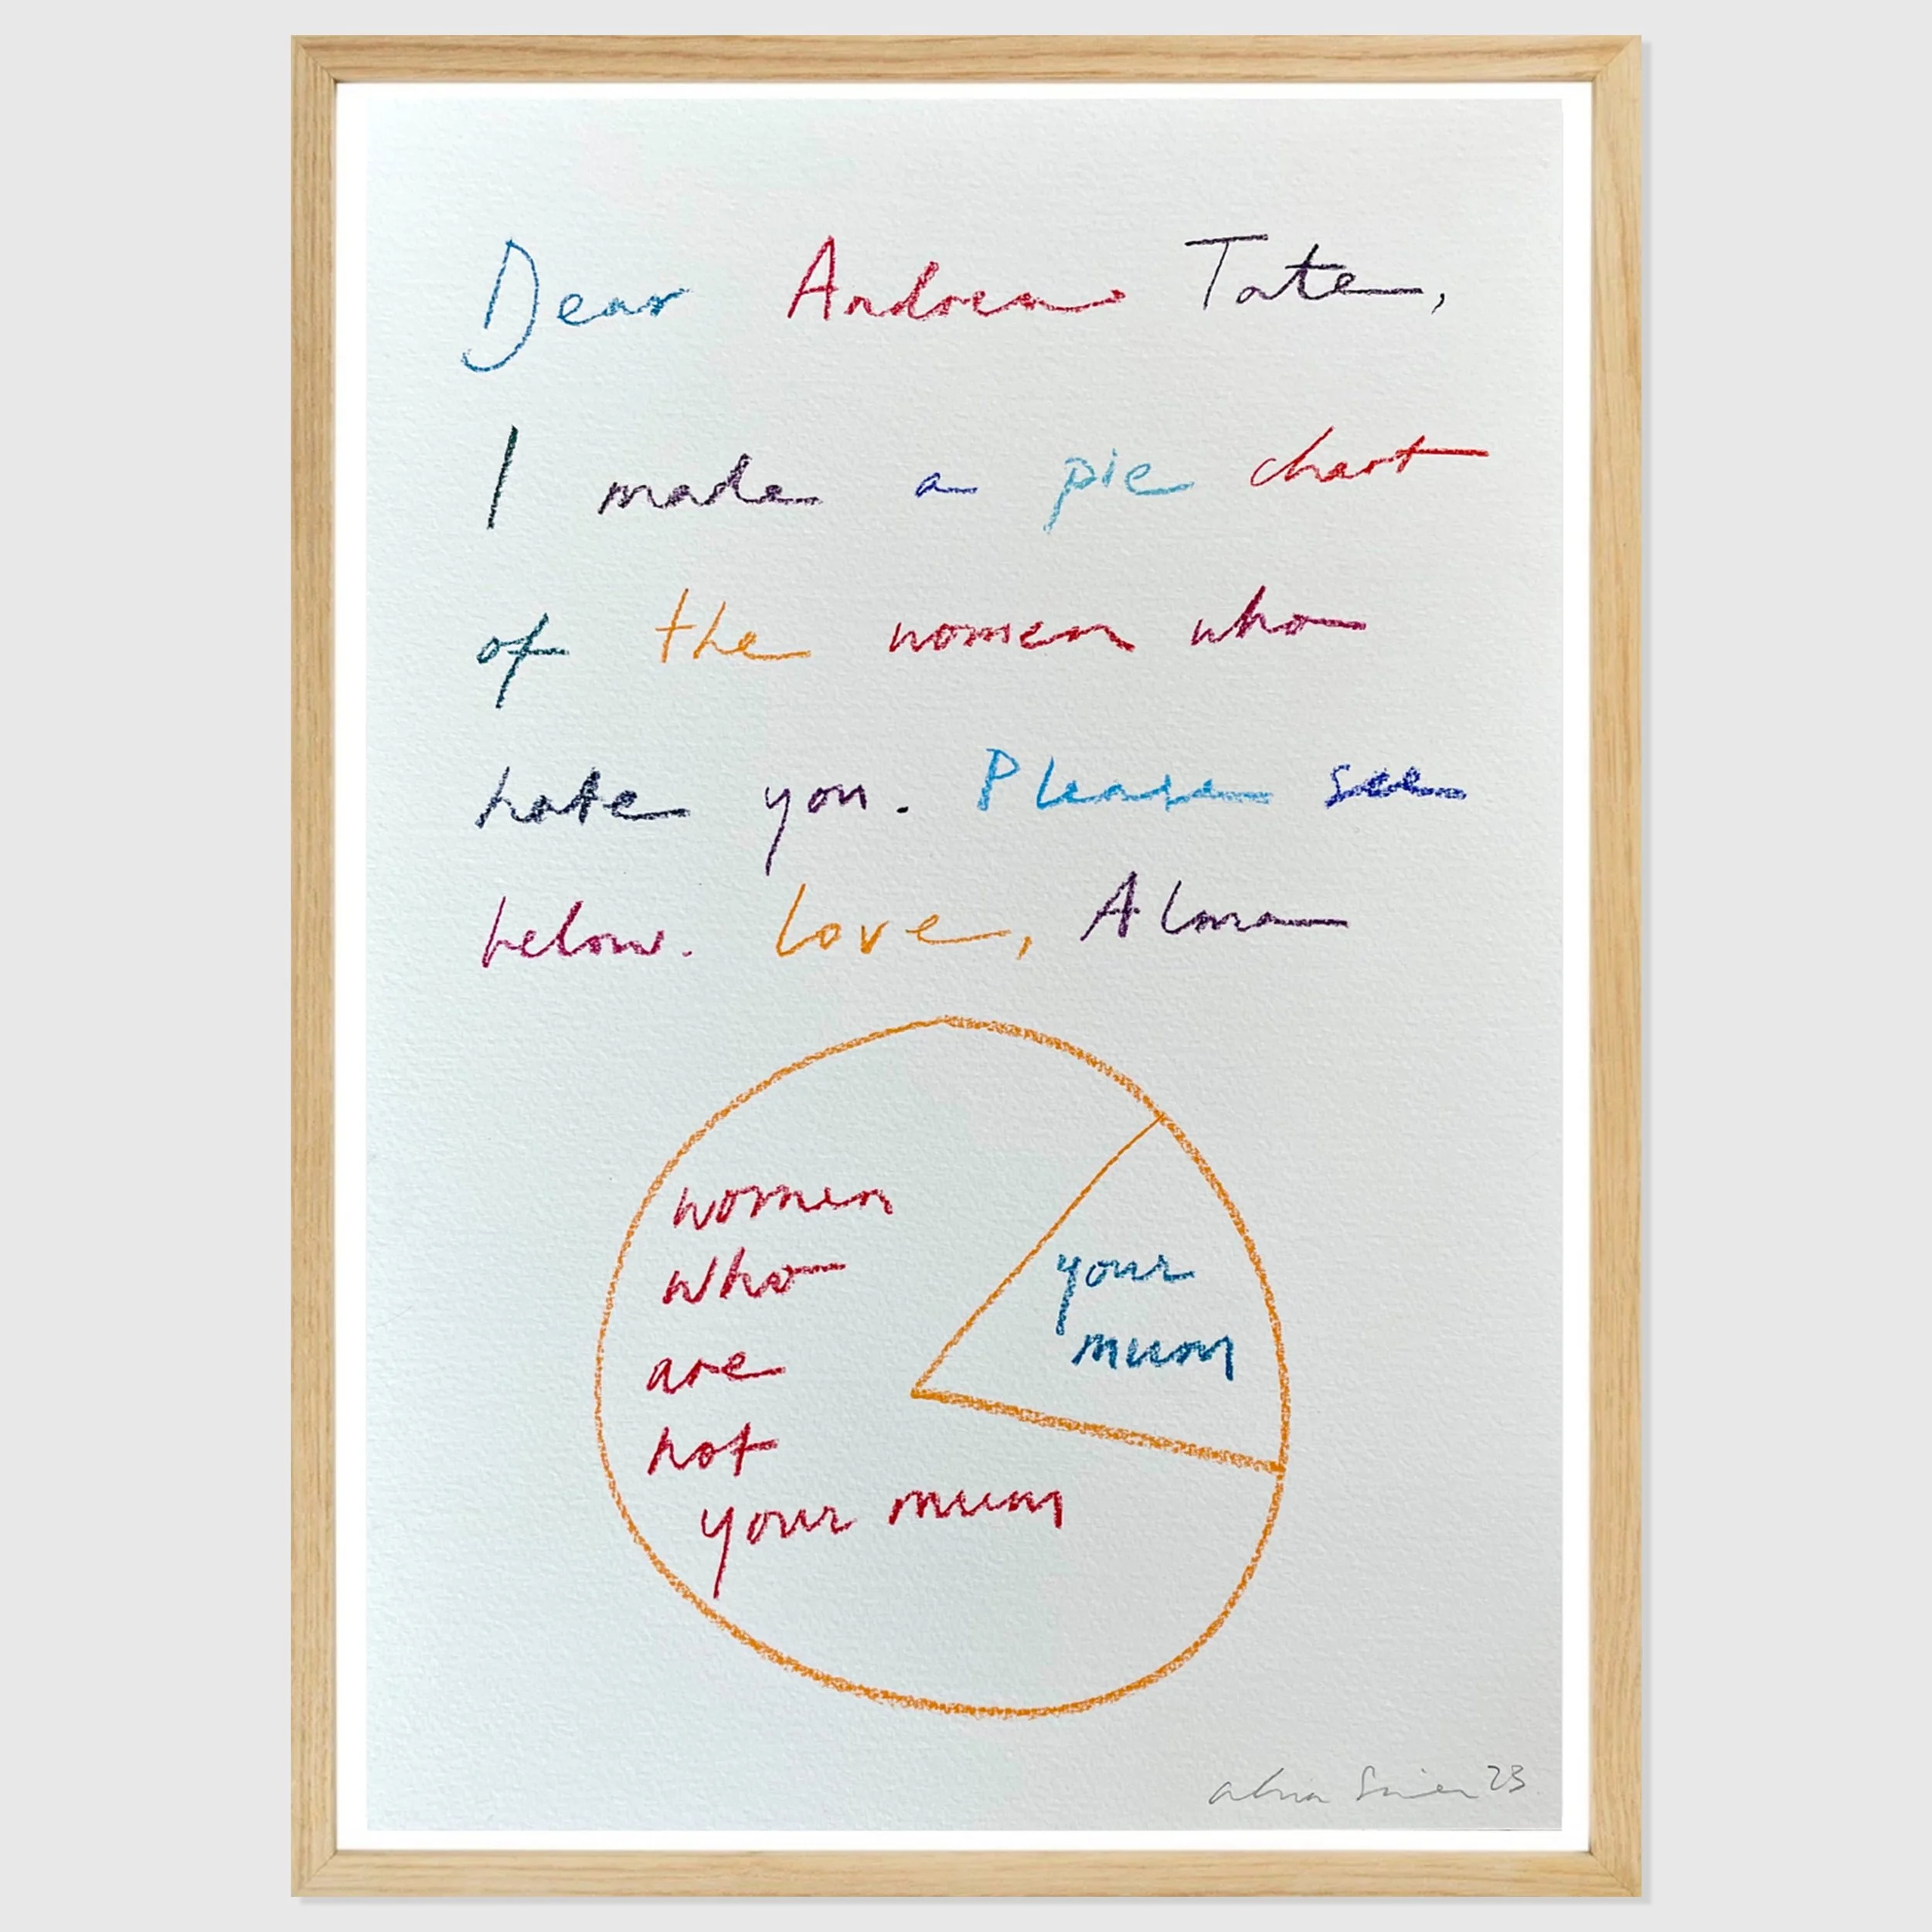 Dear Andrew Tate,
I made a pie chart
of the women who
hate you. Please see
below. Love, Alma
women
who
are
not
your mum
your
mum
23